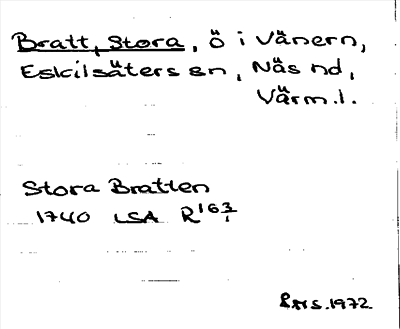 Bratt, Stora, ö i Vänern,
Eskilsäters sn, Näs hd,
Värm.l.
Stora Bratten
1740 LSA R 163/1
1972